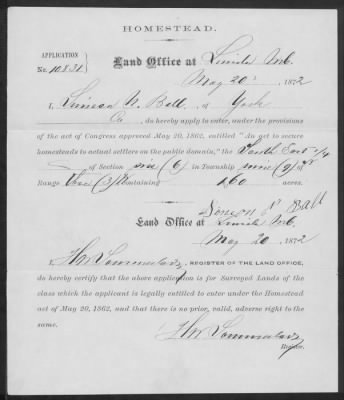 HOMESTEAD.
APPLICATION
No. 10831
Land Office at Lincoln Neb.
May 20 1872
I, N. Ball, of York
Co, do hereby apply to enter, under the provisions
of the act of Congress approved May 20, 1862, entitled "An act to secure
homesteads to actual settlers on the public domain," the South East 1/4
of Section six (6) in Township nine (9) N
Range three (3) containing 160 acres.
N Ball
Land Office at Lincoln Neb.
May 20 1872
I, REGISTER OF THE LAND OFFICE,
do hereby certify that the above application is for Surveyed Lands of the
class which the applicant is legally entitled to enter under the Homestead
act of May 20, 1862, and that there is no prior, valid, adverse right to the
same.
Register.